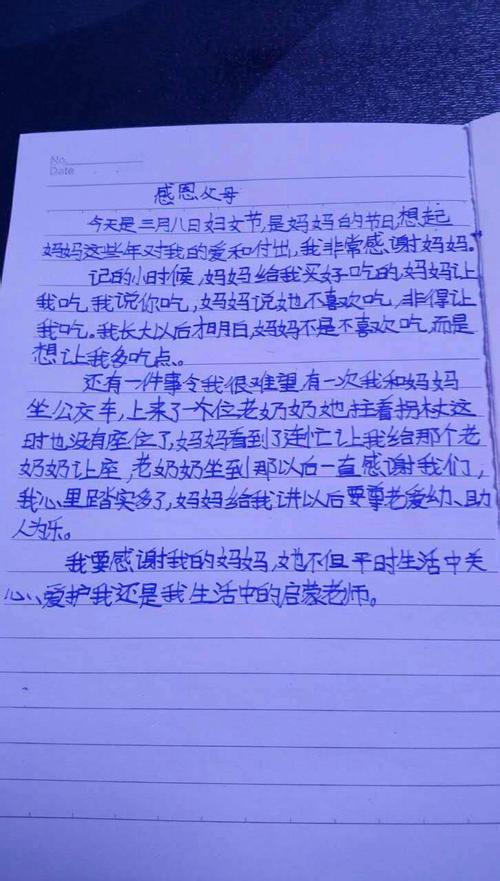 No.
Date
感恩父母
今天是三月八日妇女节,是妈妈的节日,想起
妈妈这些年对我的爱和付出,我非常感谢妈妈。
记的小时候,妈妈给我买好吃的,妈妈让
我吃,我说你吃,妈妈说她不喜欢吃,非得让
我吃。我长大以后才明白,妈妈不是不喜欢吃,而是
想让我多吃点。
还有一件事令我很难望,有一次我和妈妈
坐公交车,上来了一个位老奶奶她拄着拐杖这
时也没有座位了,妈妈看到了连忙让我给那个老
奶奶让座,老奶奶坐到那以后一直感谢我们,
我心里踏实多了,妈妈给我讲以后要尊老爱幼、助
人为乐。
我要感谢我的妈妈,她不但平时生活中关
心、爱护我还是我生活中的启蒙老师。